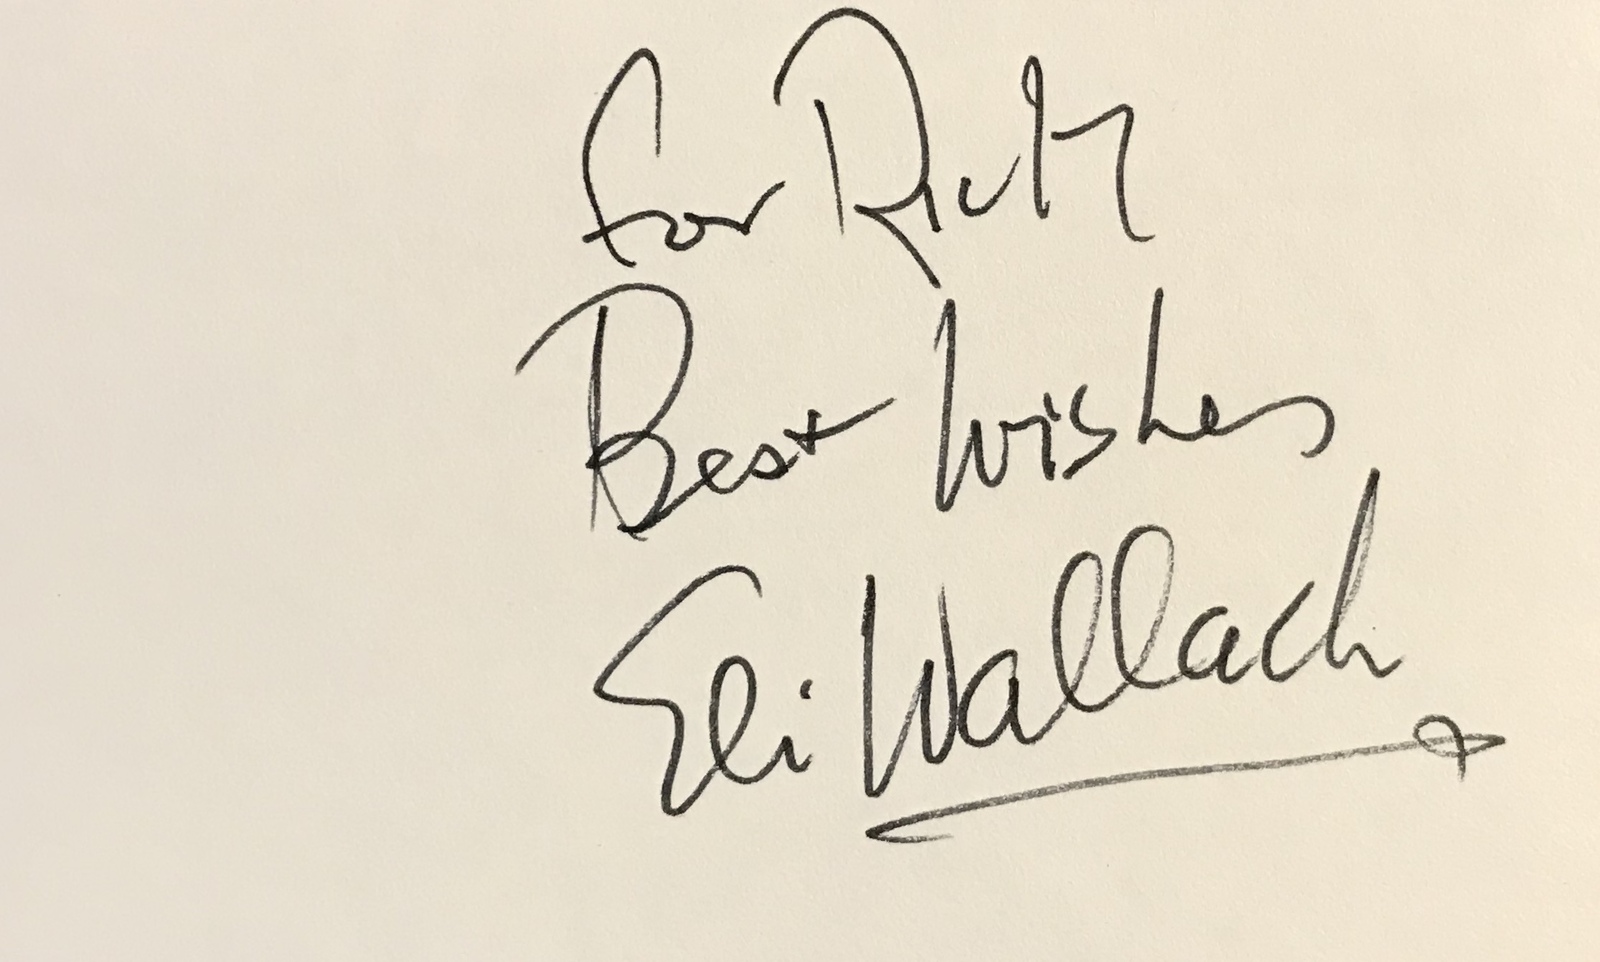 For Rich
Best Wishes
Eli Wallach